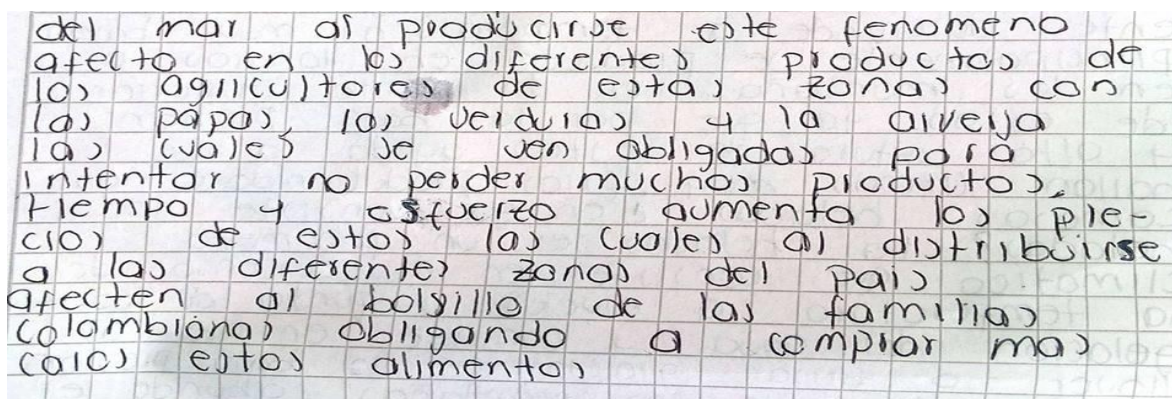 del mar al producirse este fenomeno
afecto en los diferentes productos de
los agricultores de estas zonas con
las papas, las verduras y la arveja
las cuales se ven obligadas para
intentar no perder muchos productos,
tiempo y esfuerzo aumenta los pre-
cios de estos las cuales al distribuirse
a las diferentes zonas del pais
afecten al bolsillo de las familias
colombianas obligando a comprar mas
caros estos alimentos